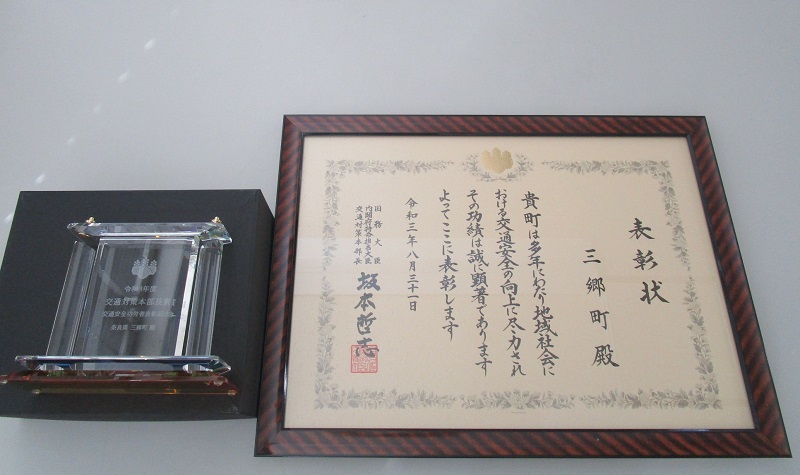 表彰状
三郷町殿
貴町は多年にわたり地域社会に
おける交通安全の向上に尽力され
その功績は誠に顕著であります
よってここに表彰します
令和三年八月三十一日
国務大臣
内閣府特命担当大臣
交通対策本部長
坂本哲志
令和3年度
交通対策本部長表彰
奈良県 三郷町 殿